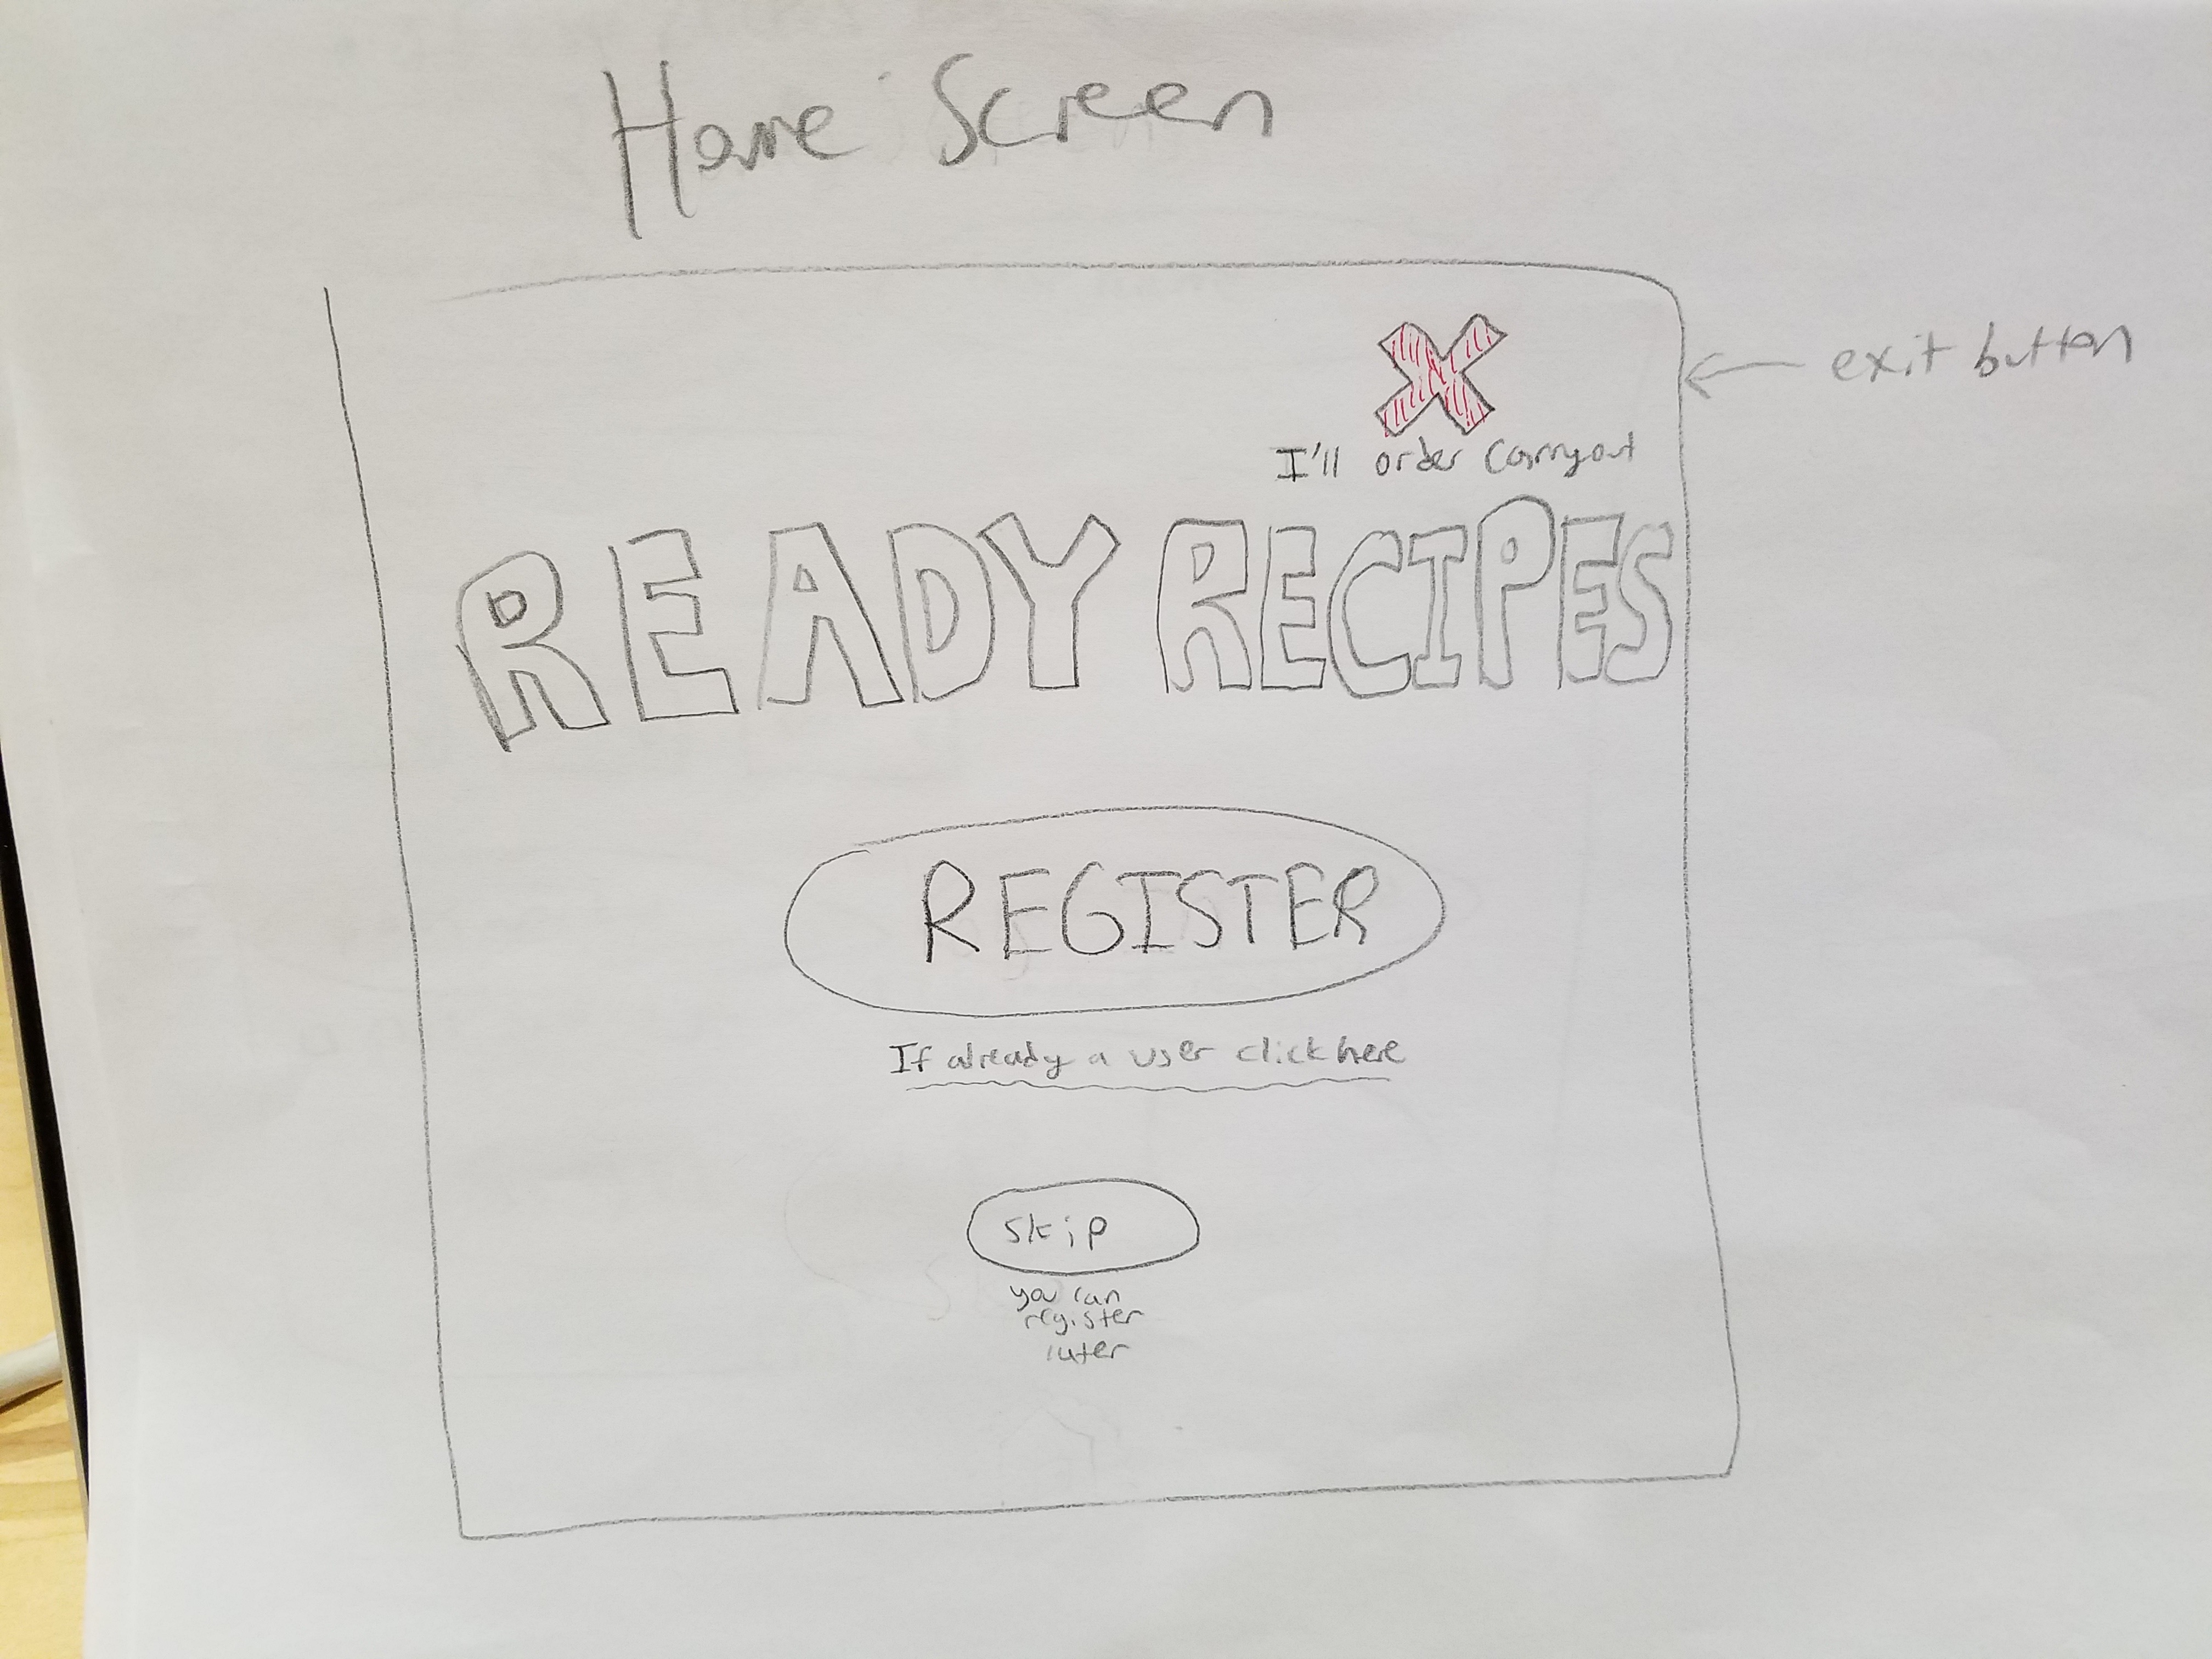 Home Screen
exit button
I'll order carryout
READY RECIPES
REGISTER
If already a user click here
skip
you can
register
later